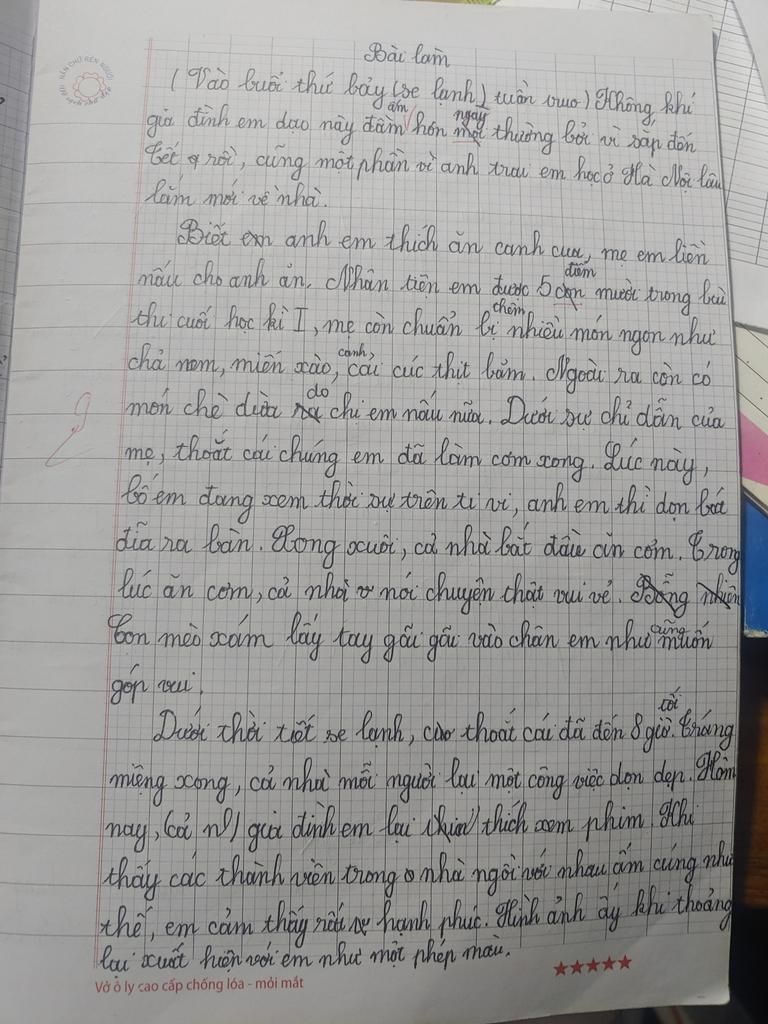 Bài làm
(Vào buổi thứ bảy (se lạnh) tuần vừa) Không khí
gia đình em dạo này đầm ấm hơn ngày thường bởi vì sắp đến
Tết rồi, cũng một phần vì anh trai em học ở Hà Nội lâu
lắm mới về nhà.
Biết anh em thích ăn canh cua, mẹ em liền
nấu cho anh ăn. Nhân tiện em được 5 điểm mười trong bài
thi cuối học kì I, mẹ còn chuẩn bị thêm nhiều món ngon như
chả nem, miến xào, canh cải cúc thịt băm. Ngoài ra còn có
món chè dừa do chị em nấu nữa. Dưới sự chỉ dẫn của
mẹ, thoắt cái chúng em đã làm cơm xong. Lúc này,
bố em đang xem thời sự trên ti vi, anh em thì dọn bát
đĩa ra bàn. Xong xuôi, cả nhà bắt đầu ăn cơm. Trong
lúc ăn cơm, cả nhà nói chuyện thật vui vẻ. Bỗng nhiên
Con mèo xám lấy tay gãi gãi vào chân em như cũng muốn
góp vui.
Dưới thời tiết se lạnh, thoắt cái đã đến 8 giờ tối. Tráng
miệng xong, cả nhà mỗi người lại một công việc dọn dẹp. Hôm
nay, (cả nh) gia đình em lại thích xem phim. Khi
thấy các thành viên trong nhà ngồi với nhau ấm cúng như
thế, em cảm thấy rất hạnh phúc. Hình ảnh ấy khi thoảng
lại xuất hiện với em như một phép màu.
Vở ô ly cao cấp chống lóa - mỏi mắt